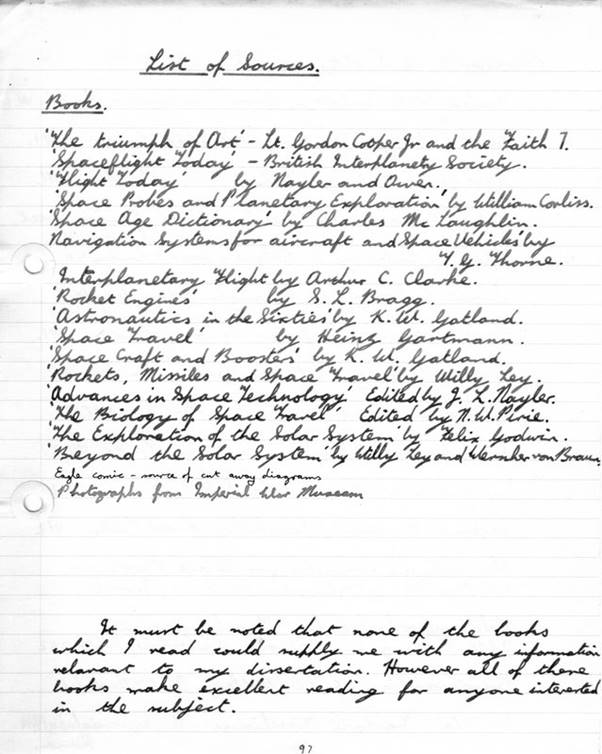 List of Sources.
Books.
'The triumph of Art' - Lt. Gordon Cooper Jr and the Faith 7.
'Spaceflight Today' - British Interplanety Society.
'Flight Today' by Nayler and Ower.
'Space Probes and Planetary Exploration' by William Corliss.
'Space Age Dictionary' by Charles Mc Laughlin.
Navigation Systems for aircraft and Space Vehicles' by
T. G. Thorne.
'Interplanetary Flight by Arthur C. Clarke.
'Rocket Engines' by S. L. Bragg.
'Astronautics in the Sixties' by K. W. Gatland.
'Space Travel' by Heinz Gartmann.
'Space Craft and Boosters' by K. W. Gatland.
'Rockets, Missiles and Space Travel' by Willy Ley
'Advances in Space Technology' Edited by J. L. Nayler.
'The Biology of Space Travel' Edited by N. W. Pirie.
'The Exploration of the Solar System' by Felix Godwin.
'Beyond the Solar System' by Willy Ley and Wernher von Braun,
Eagle comic - source of cut away diagrams
Photographs from Imperial War Museum
It must be noted that none of the books
which I read could supply me with any information
relavant to my dissertation. However all of these
books make excellent reading for anyone interested
in the subject.
97